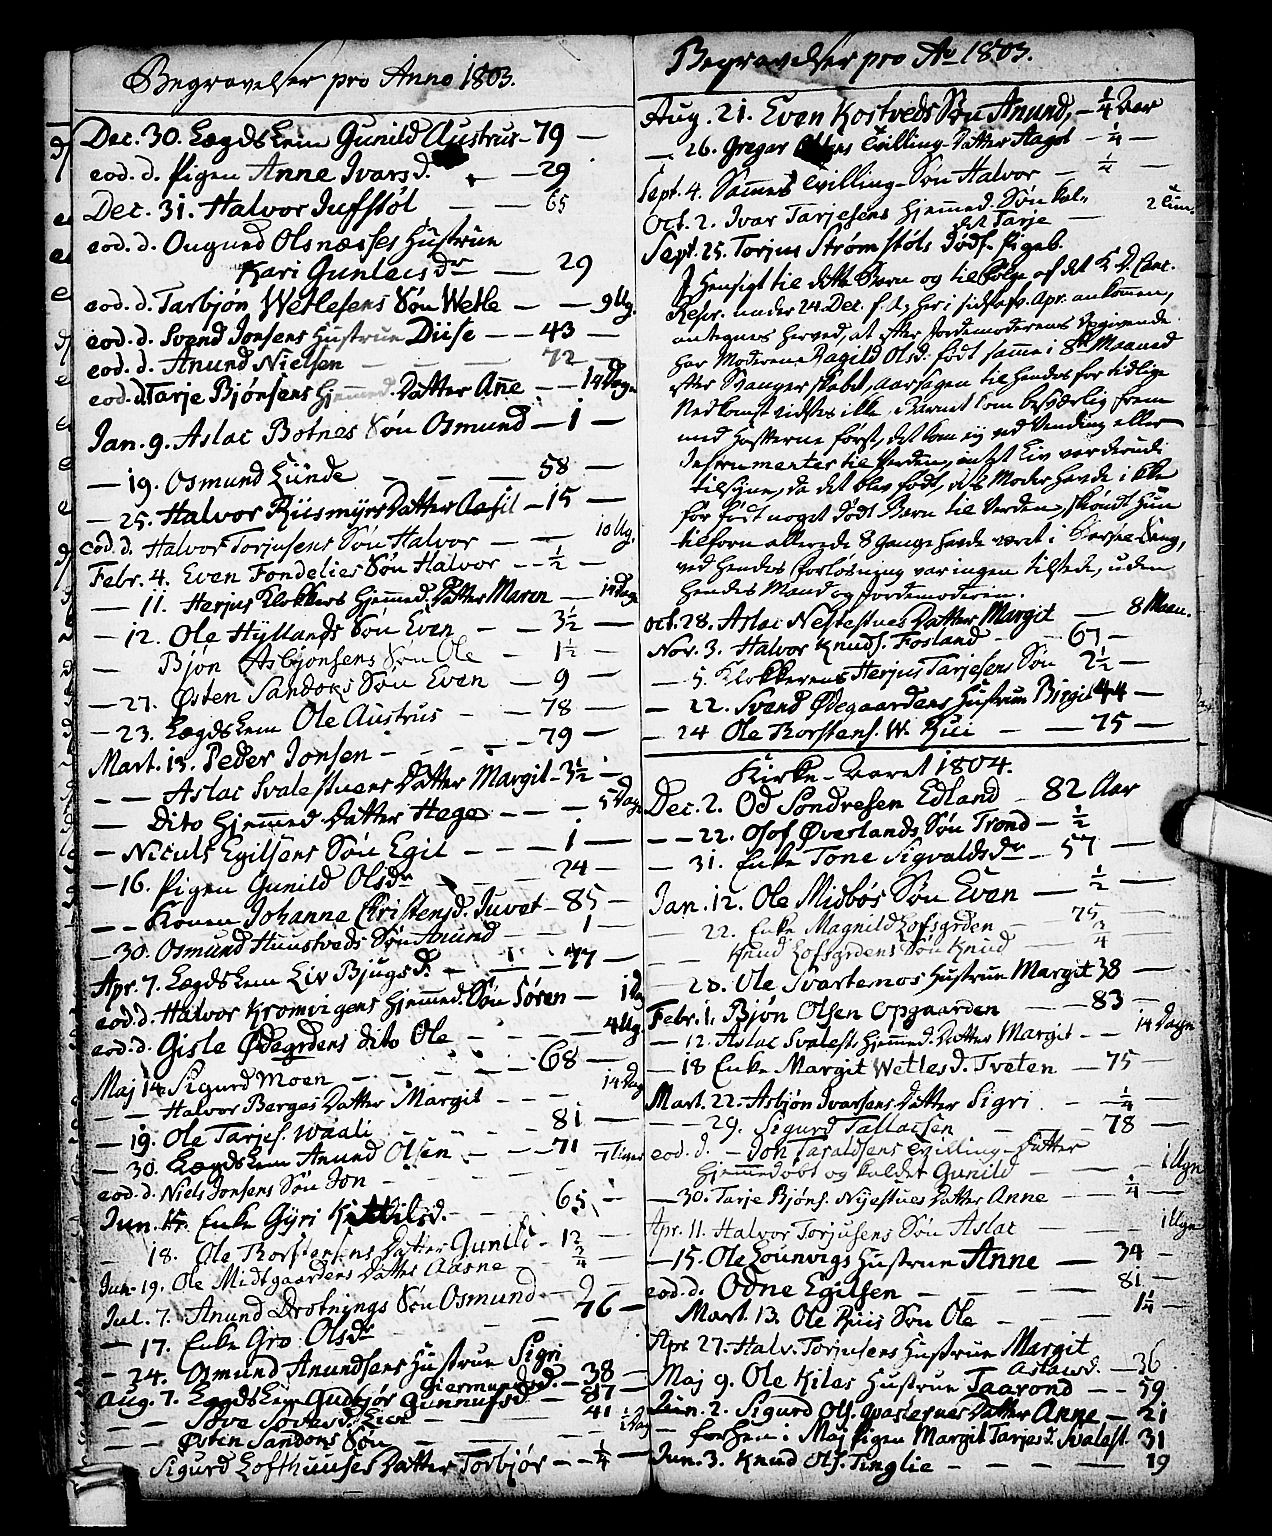 Begravelser pro Anno 1803.
Dec. 30. Lægdslem Gunild Austrus - 79 —
eod. d. Pigen Anne Ivarsd. — 29 —
Dec. 31. Halvor Jufstøl — — 65
eod. d. Ougund Olsnæsses Hustrue
Kari Gunleisdr — 29
eod. d. Tarbjøn Wetlesens Søn Wetle — — 9 Ug.
eod. d. Svend Jonsens Hustrue Diise — 43 —
eod. d. Anund Nielsen — — 72 —
eod. d. Tarje Bjønsens Hjemmed. Datter Anne — — 14 Dage
Jan. 9. Aslac Botnes Søn Osmund — 1 —
— 19. Osmund Lunde — — 58 —
— 25. Halvor Riismyrs Datter Aasil — 15 —
eod. d. Halvor Torjusens Søn Halvor — — 10 Ug.
Febr. 4. Even Fondelies Søn Halvor — ½ —
— 11. Herjus Klokkers Hjemmed. Datter Maren — 14 Dage
— 12. Ole Hyllands Søn Even — — 3½ —
— Bjøn Asbjønsens Søn Ole — 1½ —
— 27. Østen Sandoks Søn Even — 9 —
— 23. Lægdslem Ole Austrus — — 78 —
Mart. 13. Peder Jonsen - — — 79 —
— — Aslac Svalestuens Datter Margit - 3½ —
— Dito Hjemmed Datter Hæge — — — 5 Dage
— Niculs Egilsens Søn Egil — — — 1 —
— 16. Pigen Gunild Olsdr — — 24 —
— — Konen Johanne Christensd. Juvet - 85 —
— 30. Osmund Huustveds Søn Anund — — 1 —
Apr. 7. Lægdslem Liv Bjugsd. — — 77 —
eod. d. Halvor Kromvigens Hjemmed. Søn Søren — 1 Dag
eod. d. Gisle Ødegrdens dito Ole — — 4 Ug.
Maj 14. Sigurd Moen — — — 68 —
— — Halvor Berges Datter Margit — — — 14 Dage
— 19. Ole Tarjes. Waali — — 81 —
— 30. Lægdslem Anund Olsen — — 71 —
eod. d. Niels Jonsens Søn Jon — — 7 Timer
Jun. Enke Gyri Kittilsd. — — 65 —
— 18. Ole Thorstensens Datter Gunild — 12 —
Jun. 19. Ole Midtgaardens Datter Aasne — ¾ —
Jul. 7. Anund Drotnings Søn Osmund — 9 —
— 17. Enke Gro Olsdr — — 76 —
— 24. Osmund Anundsens Hustrue Sigri
Giermundsd. — 38 —
Aug. 7. Lægdslem Gudbjør Gunnufsd — 87 —
— — — — 41
— — Østen Sandoks Søn — — ½ Dag
Sigurd Lofthuuses Datter Torbjør — — ¼ —
Begravelser pro Ao 1803.
Aug. 21. Even Kostveds Søn Anund, — ¼ Aar
— 26. Gregar Tvilling-Datter Aagot — ¼ —
Sept. 4. Sammes Tvilling-Søn Halvor — ¼ —
Oct. 2. Ivar Tarjesens Hjemmed. Søn kal-
det Tarje — 2 Tim.
Sept. 25. Torjus Strømstøls Dødf. Pigeb.
J Hensigt til dette Barn og til Følge af det K. D. Canc.
Rescr. under 24. Dec. f. A., her i sidstafv. Apr. ankommen,
antegnes herved, at efter Jordemoderens Opgivende
har Moderen Ragild Olsd. født samme i 8de Maaned
efter Svangerskabet, aarsagen til hendes for tidlige
Nedkomst vidstes ikke, Barnet kom besværlig frem
med Hofterne først, det kom ej ved Vending eller
Instrumenter til Verden, intet Liv var derudi
tilsyne, da det blev født, dets Moder havde ikke
før født noget dødt Barn til Verden, skiøndt hun
tilforn allerede 8 Gange havde været i Barsel-Seng,
ved hendes Forløsning var ingen tilstede, uden
hendes Mand og Jordemoderen.
Oct. 28. Aslac Nestestues Datter Margit — 8 Maan.
Nov. 3. Halvor Knuds. Fosland — 67 —
— 5. Klokkerens Herjus Tarjesens Søn 2½ —
— 22. Svend Ødegaardens Hustrue Birgit 44 —
— 24 Ole Thorstens. W. Ruii — — 75 —
Kirke-Aaret 1804.
Dec. 2. Od Sondresen Edland — 82 Aar
— — 22. Olof Øverlands Søn Trond — ½
— 31. Enke Tone Sigvaldsdr — 57 —
Jan. 12. Ole Midbøs Søn Even — ½ —
22. Enke Magnild Lofsgrden — 75 —
— Knud Lofsgrdens Søn Knud — ¾ —
— 28. Ole Svartemos Hustrue Margit 38 —
Febr. 1. Bjøn Olsen Opgaarden — 83 —
— 12. Aslac Svalest. Hjemmed. Datter Margit — 14 Dage
— 18 Enke Margit Wetlesd. Tveten — 75 —
Mart. 22. Asbjøn Ivarsens Datter Sigri — ¼ —
— — 29. Sigurd Tallacsen — 78 —
eod. d. — Jon Taraldsens Tvilling-Datter
Hjemmedøbt og kaldet Gunild — — 1 Ugn
— 30. Tarje Bjøns. Nyestues Datter Anne — ¼ —
Apr. 11. Halvor Torjusens Søn Aslac — 1 Ugn
— 15. Ole Lounvigs Hustrue Anne — 34 —
eod. d. Odne Egilsen — — 81 —
Mart. 13. Ole Riis Søn Ole — — 1¼ —
Apr. 27. Halv. Torjusens Hustrue Margit
Aslacsd. — 36
Maj 9. Ole Kiles Hustrue Taarond — — 59
Jun. 2. Sigurd Ols. Datter Anne — 21
— forhen i Maj Pigen Margit Tarjesd. Svalest. 31
Jun. 3. Knud Ols. Tinglie — — — 19